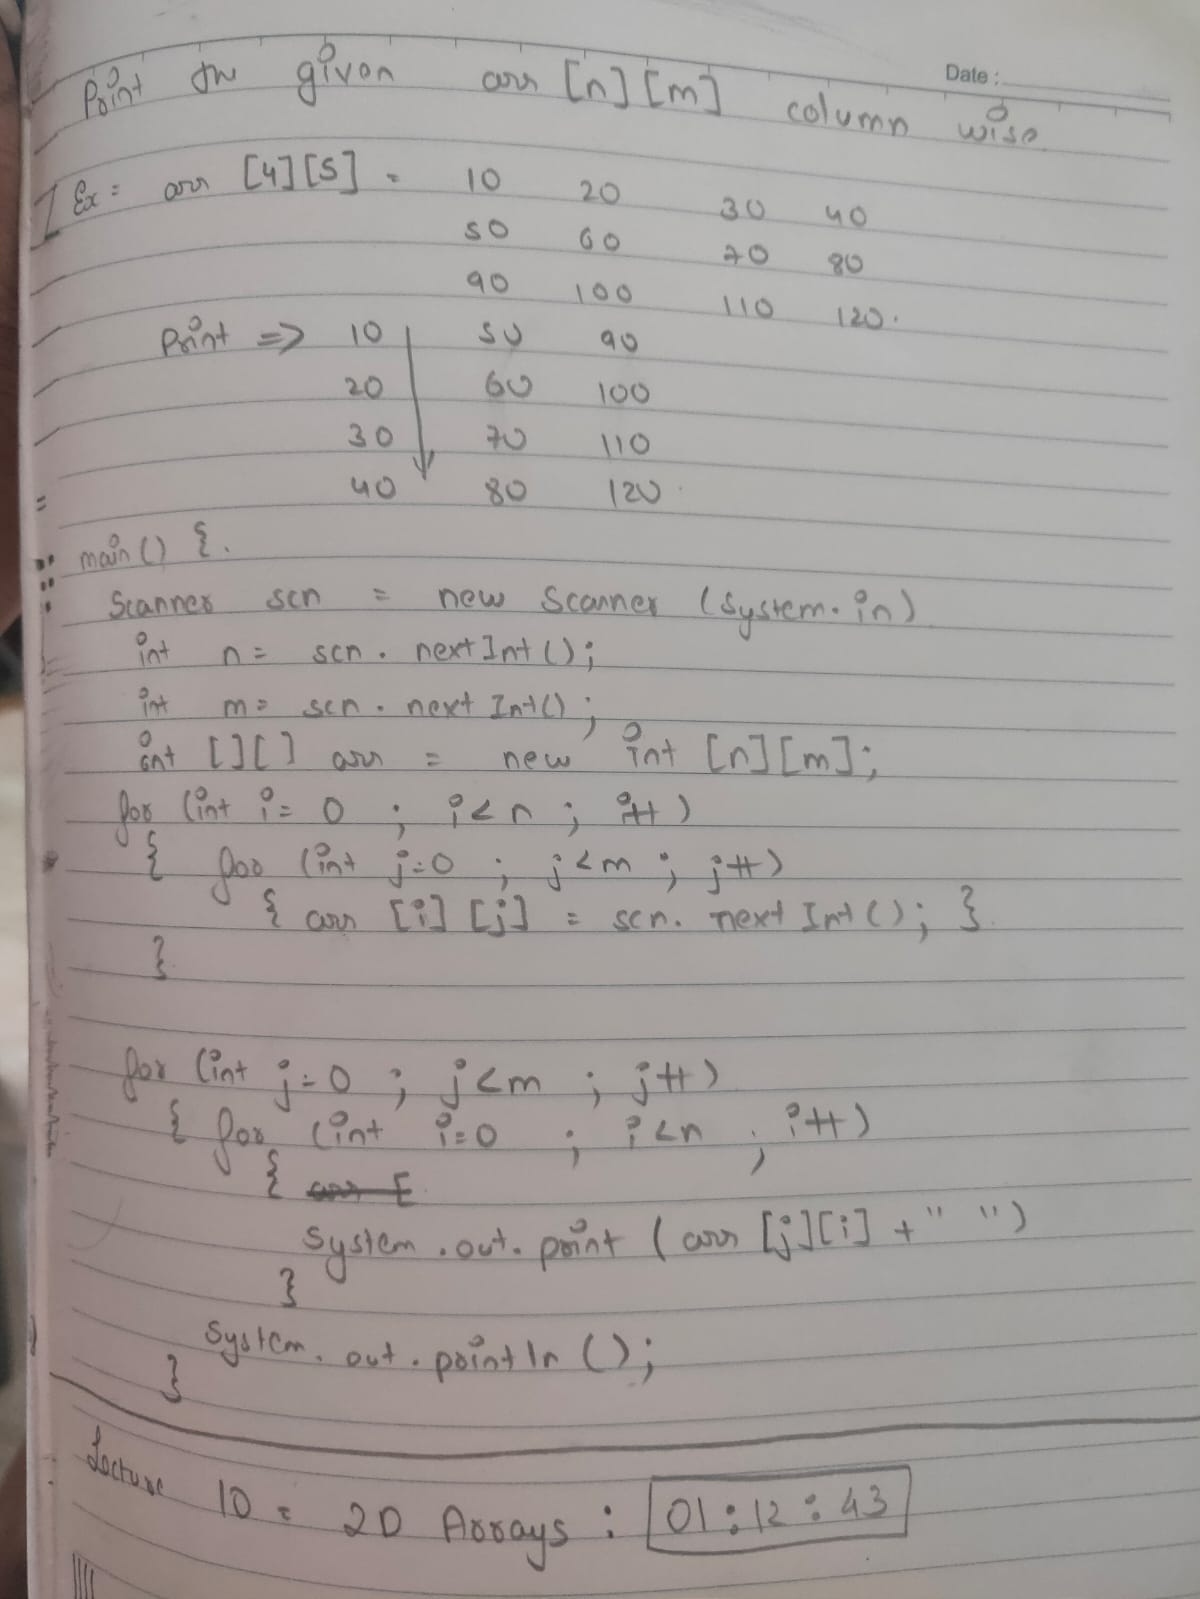 Date :
Print the given arr [n][m] column wise
Ex = arr [4][5] = 10 20 30 40
50 60 70 80
90 100 110 120.
Print => 10 50 90
20 60 100
30 70 110
40 80 120
main () {
Scanner scn = new Scanner (System.in)
int n = scn . next Int ();
int m = scn . next Int () ;
int [][] arr = new int [n][m];
for (int i = 0 ; i < n ; i++)
{ for (int j = 0 ; j < m ; j++)
{ arr [i] [j] = scn. next Int () ; }
}
for (int j = 0 ; j < m ; j++)
{ for (int i = 0 ; i < n ; i++)
{
System . out . print ( arr [j][i] + " ")
}
System . out . println () ;
}
Lecture 10 = 2D Arrays : 01 : 12 : 43